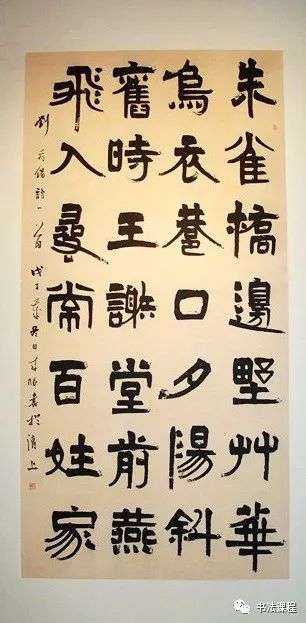 朱雀橋邊野艸華
烏衣巷口夕陽斜
舊時王謝堂前燕
飛入尋常百姓家
劉禹錫詩一首 戊子年 書於滬上
书法课程